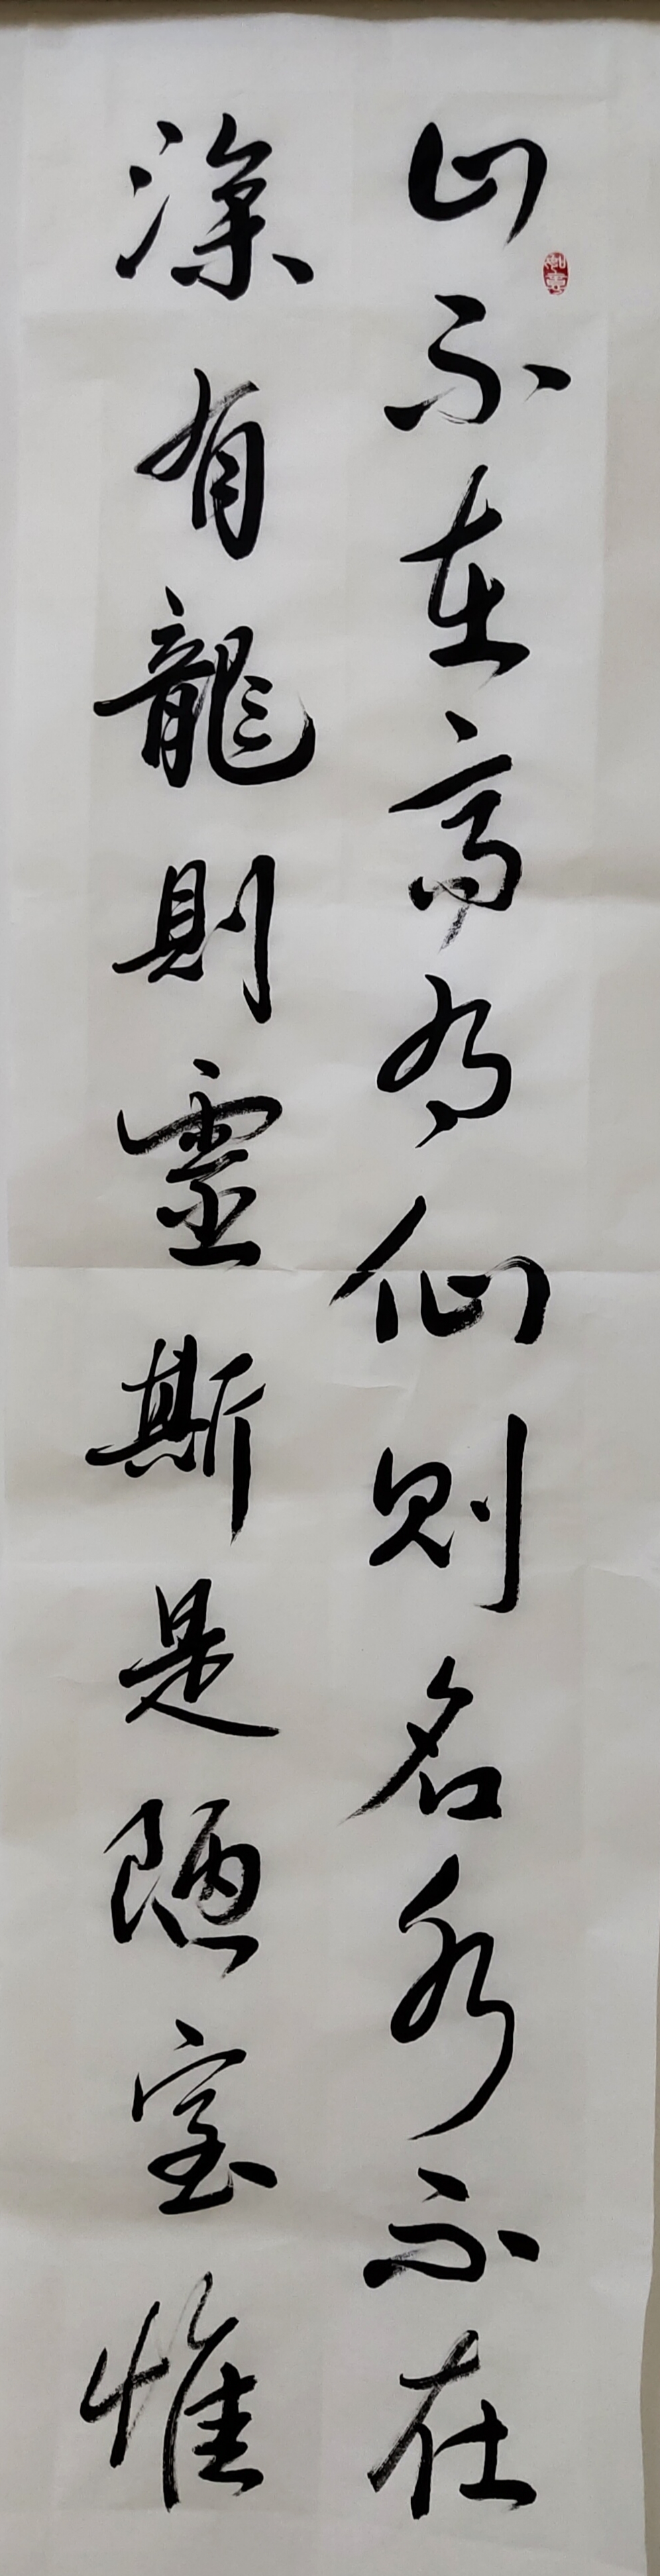 山不在高有仙則名水不在
深有龍則靈斯是陋室惟